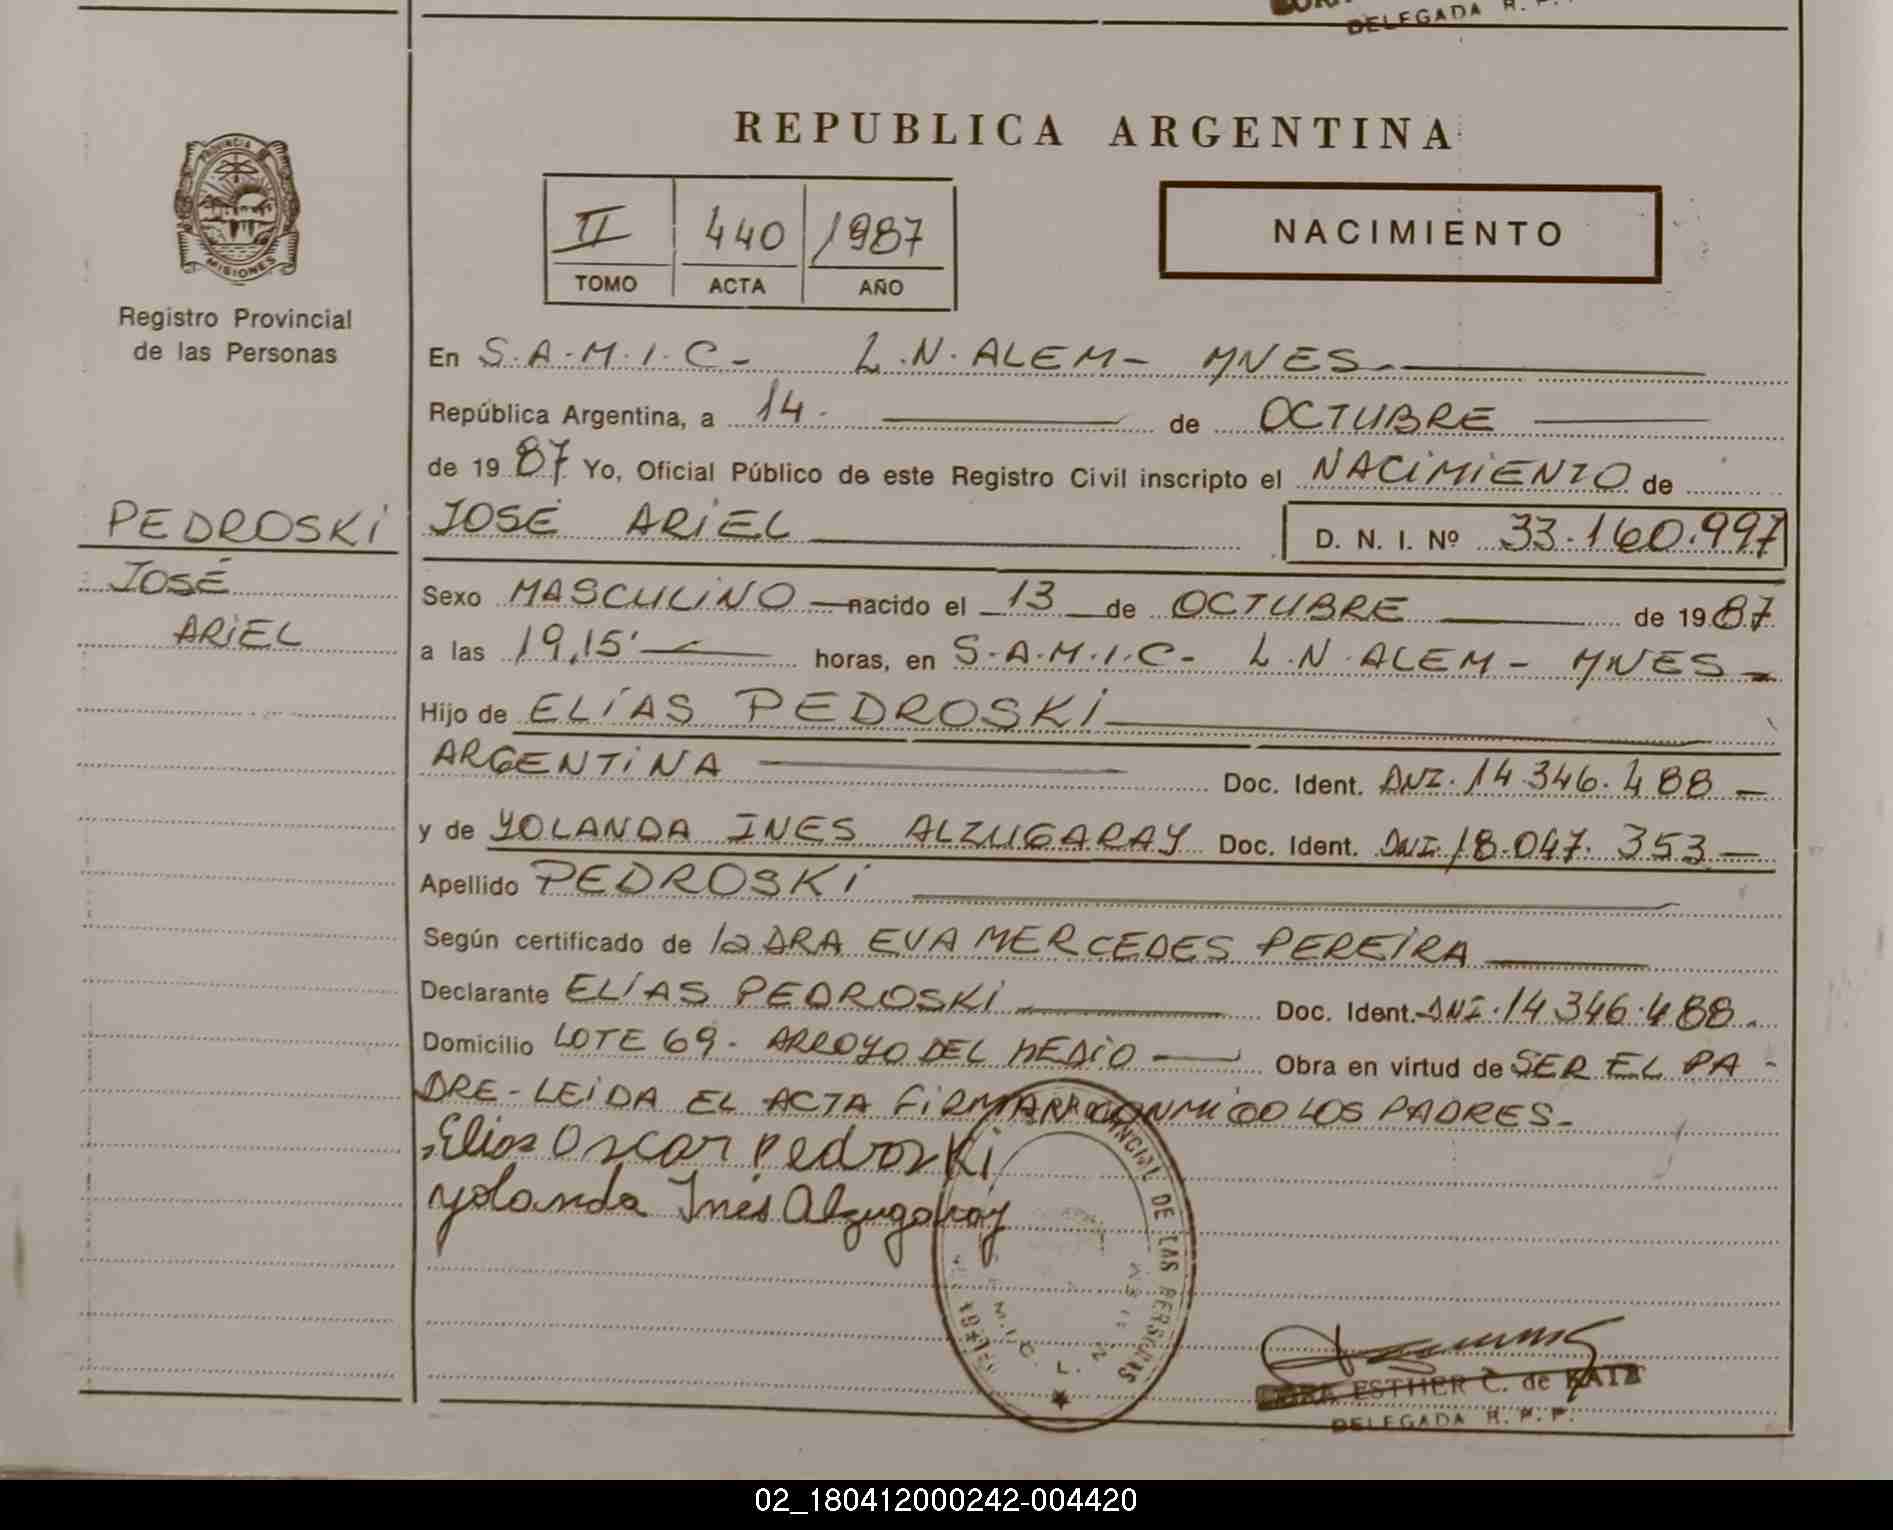 DELEGADA R. P.
REPUBLICA ARGENTINA
PROVINCIA
MISIONES
Registro Provincial
de las Personas
II 440 1987
TOMO ACTA AÑO
NACIMIENTO
En S.A.M.I.C- L.N.ALEM- MNES-
República Argentina, a 14. de OCTUBRE
de 1987 Yo, Oficial Público de este Registro Civil inscripto el NACIMIENTO de
PEDROSKI
JOSÉ
ARIEL
JOSÉ ARIEL D. N. I. Nº 33.160.997
Sexo MASCULINO nacido el 13 de OCTUBRE de 1987
a las 19,15' horas, en S.A.M.I.C- L.N.ALEM- MNES-
Hijo de ELÍAS PEDROSKI
ARGENTINA Doc. Ident. DNI.14.346.488-
y de YOLANDA INES ALZUGARAY Doc. Ident. DNI.18.047.353-
Apellido PEDROSKI
Según certificado de la DRA EVA MERCEDES PEREIRA
Declarante ELÍAS PEDROSKI Doc. Ident. DNI.14.346.488.
Domicilio LOTE 69- ARROYO DEL MEDIO Obra en virtud de SER EL PA-
DRE-LEIDA EL ACTA FIRMAN CONMIGO LOS PADRES-
Elias Oscar Pedroski
Yolanda Inés Alzugaray
DE LAS PERSONAS
M.I.C. L. N.
ESTHER C. de KATZ
DELEGADA R. P. P.
02_180412000242-004420